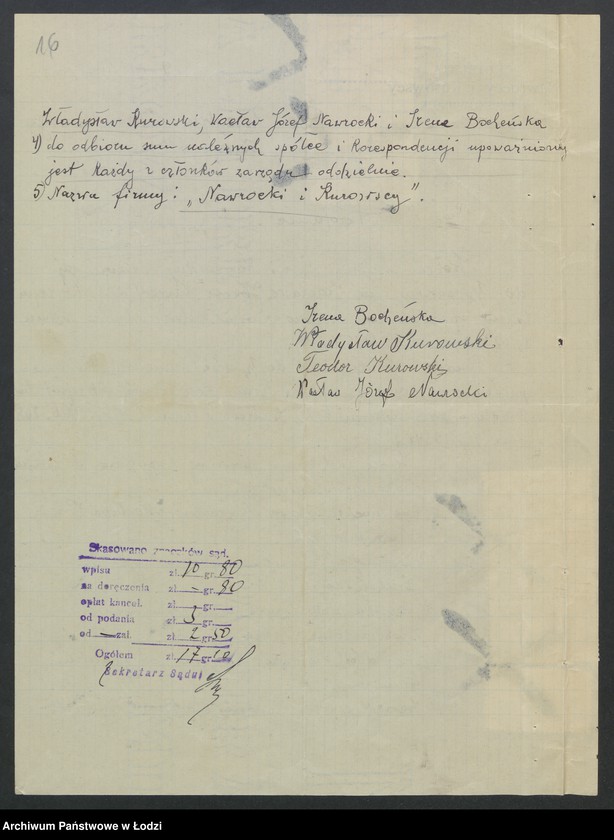 16
Władysław Kurowski, Wacław Józef Nawrocki i Irena Bocheńska
4) do odbioru sum należnych spółce i korespondencji upoważniony
jest każdy z członków zarządu oddzielnie.
5) Nazwa firmy: "Nawrocki i Kurowscy".
Irena Bocheńska
Władysław Kurowski
Teodor Kurowski
Wacław Józef Nawrocki
Skasowano znaczków sąd.
wpisu zł. 10 gr. 80
za doręczenia zł. — gr. 80
opłat kancel. zł. gr.
od podania zł. 3 gr.
od — zał. zł. 2 gr. 50
Ogółem zł. 17 gr. 10
Sekretarz Sądu
Archiwum Państwowe w Łodzi